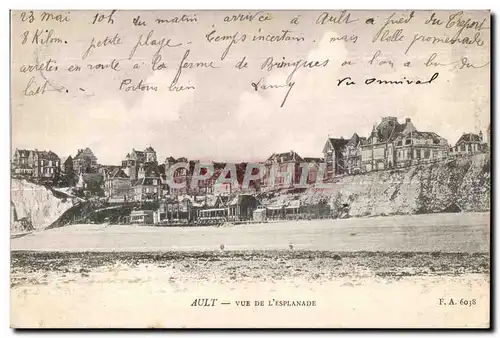 23 mai 10h du matin arrivée à Ault à pied du Tréport
8 Kilom. petite plage, temps incertain, mais Belle promenade,
arrêtés en route à la ferme de où l'on a bu du
lait. Portons bien Vu
CPARAMA
AULT — VUE DE L'ESPLANADE
F. A. 6038